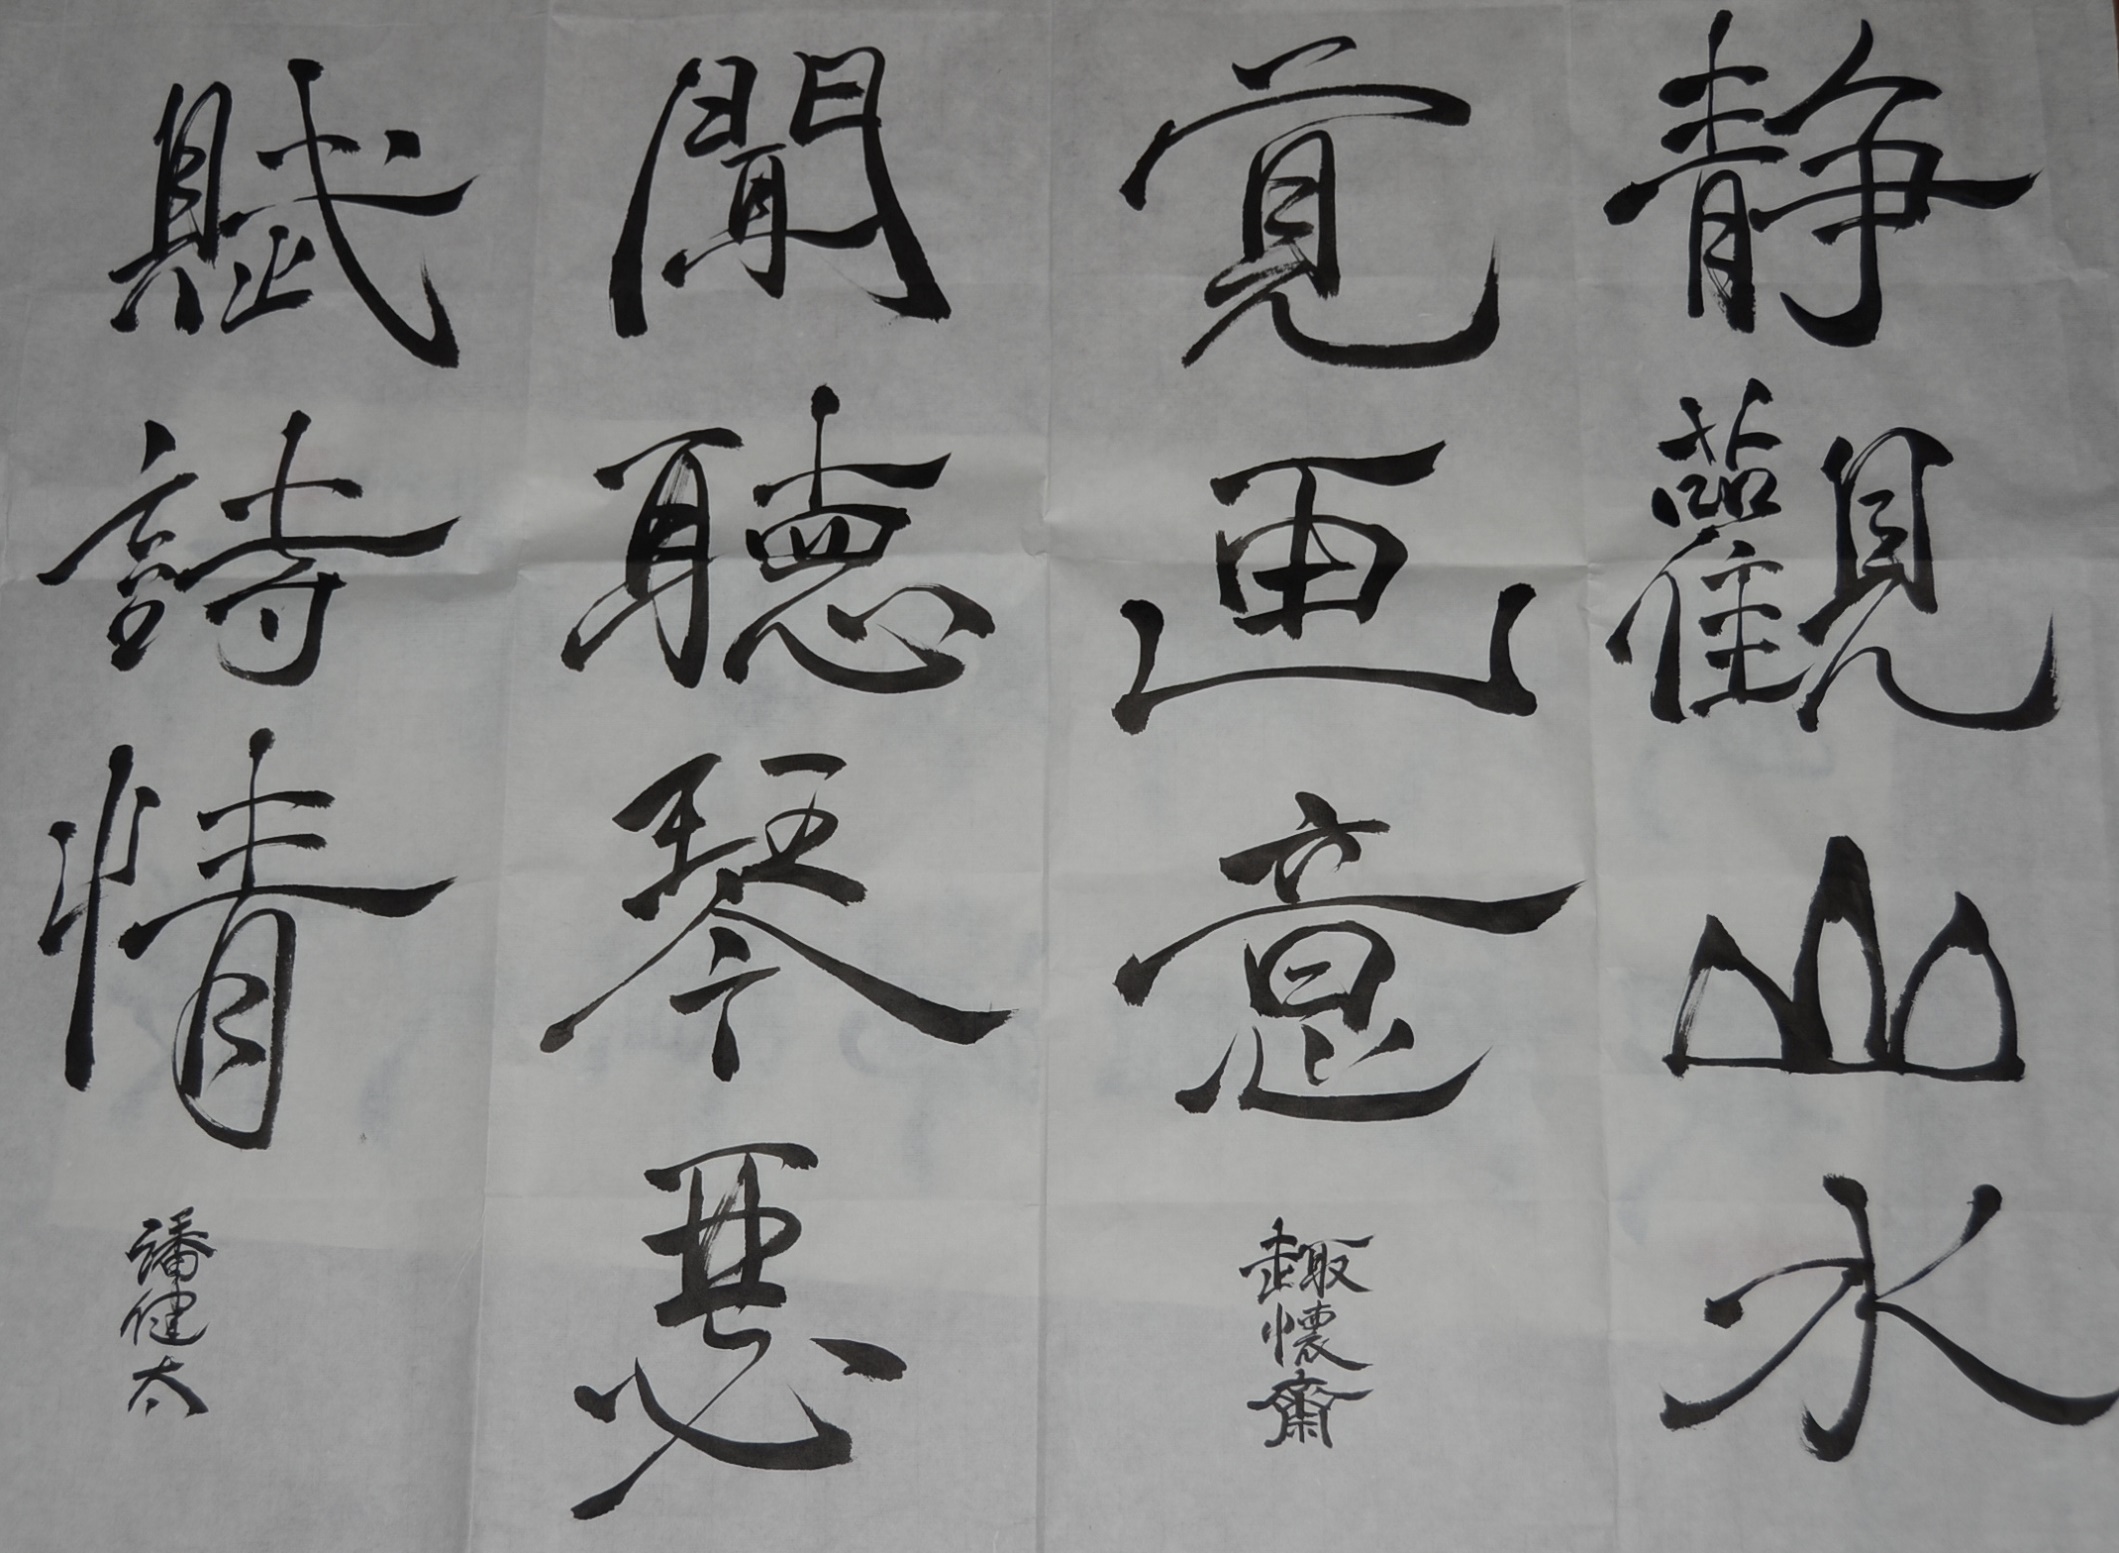 静觀山水
覚画意
趣懷齋
聞聽琴瑟
賦詩情
潘健太